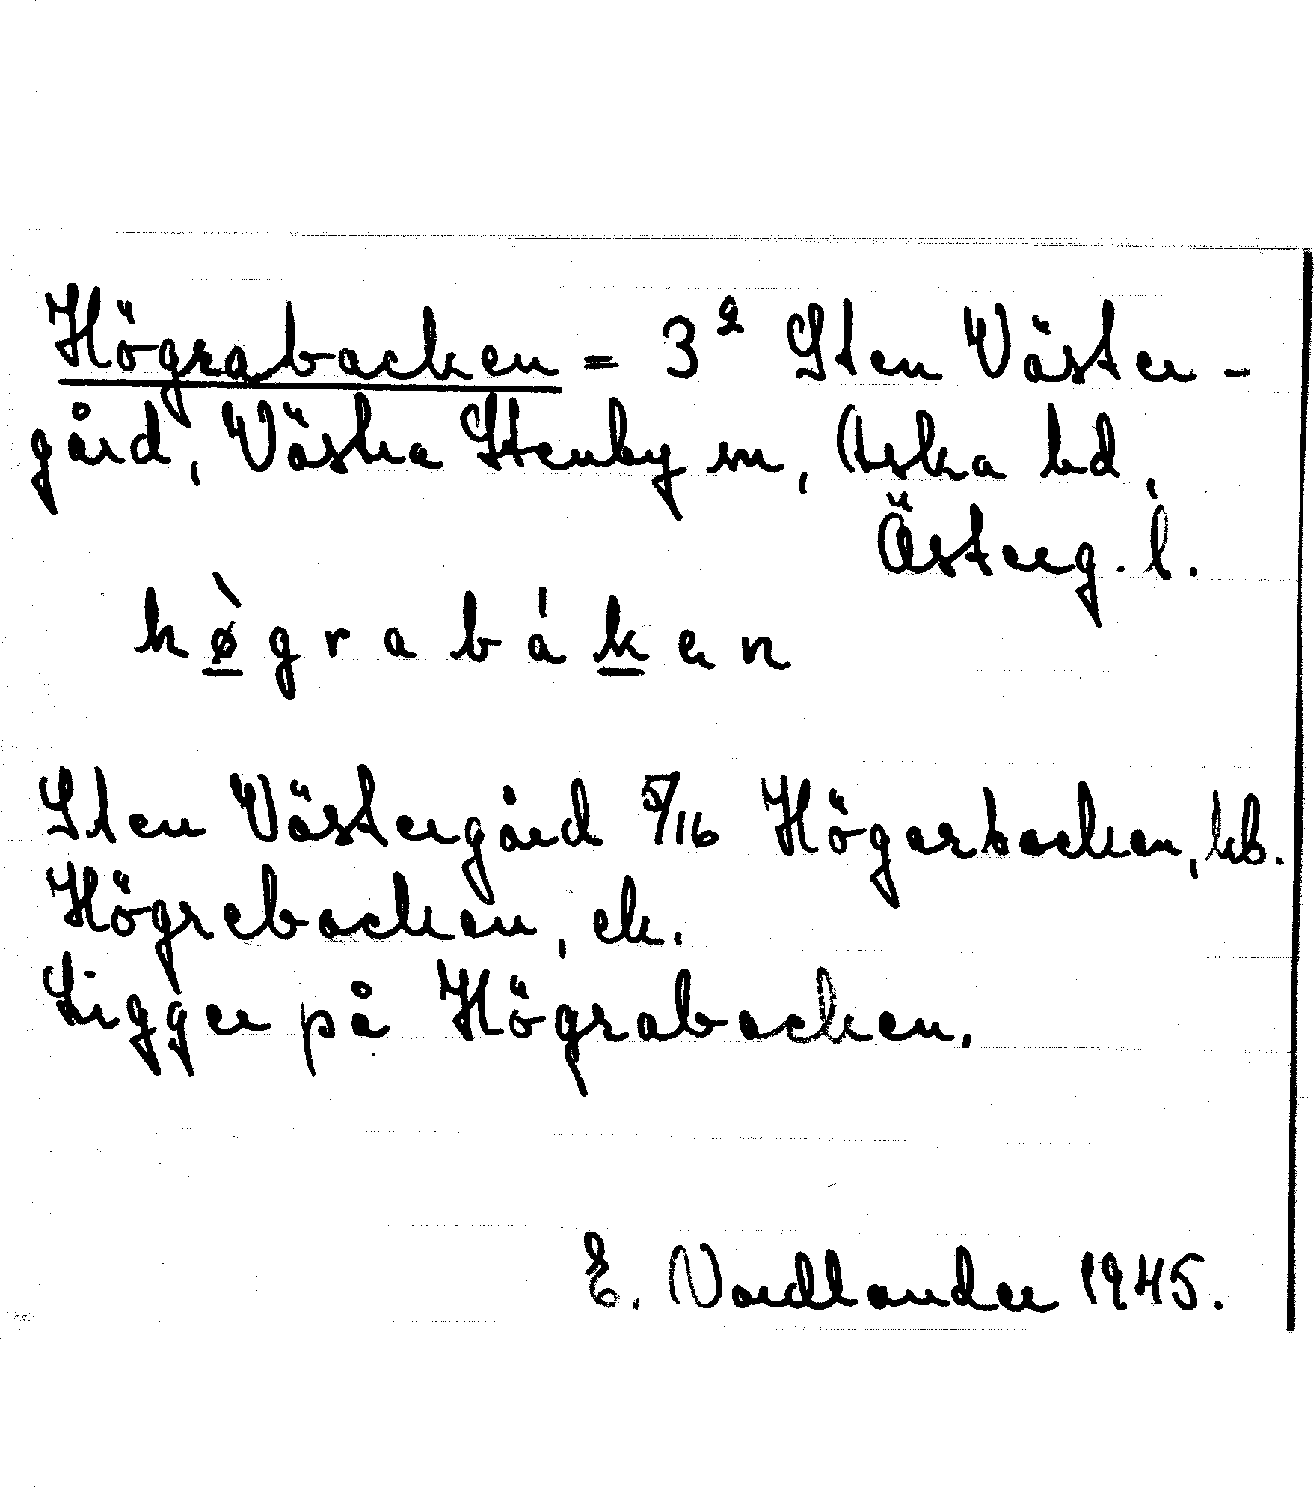 Högrabacken = 3² Sten Väster-
gård, Västra Stenby sn, Aska hd,
Österg. l.
hø̲̀grabák̲en
Sten Västergård 5/16 Högarbacken, kb.
Högrebacken, ek.
Ligger på Högrabacken.
E. Nordlander 1945.